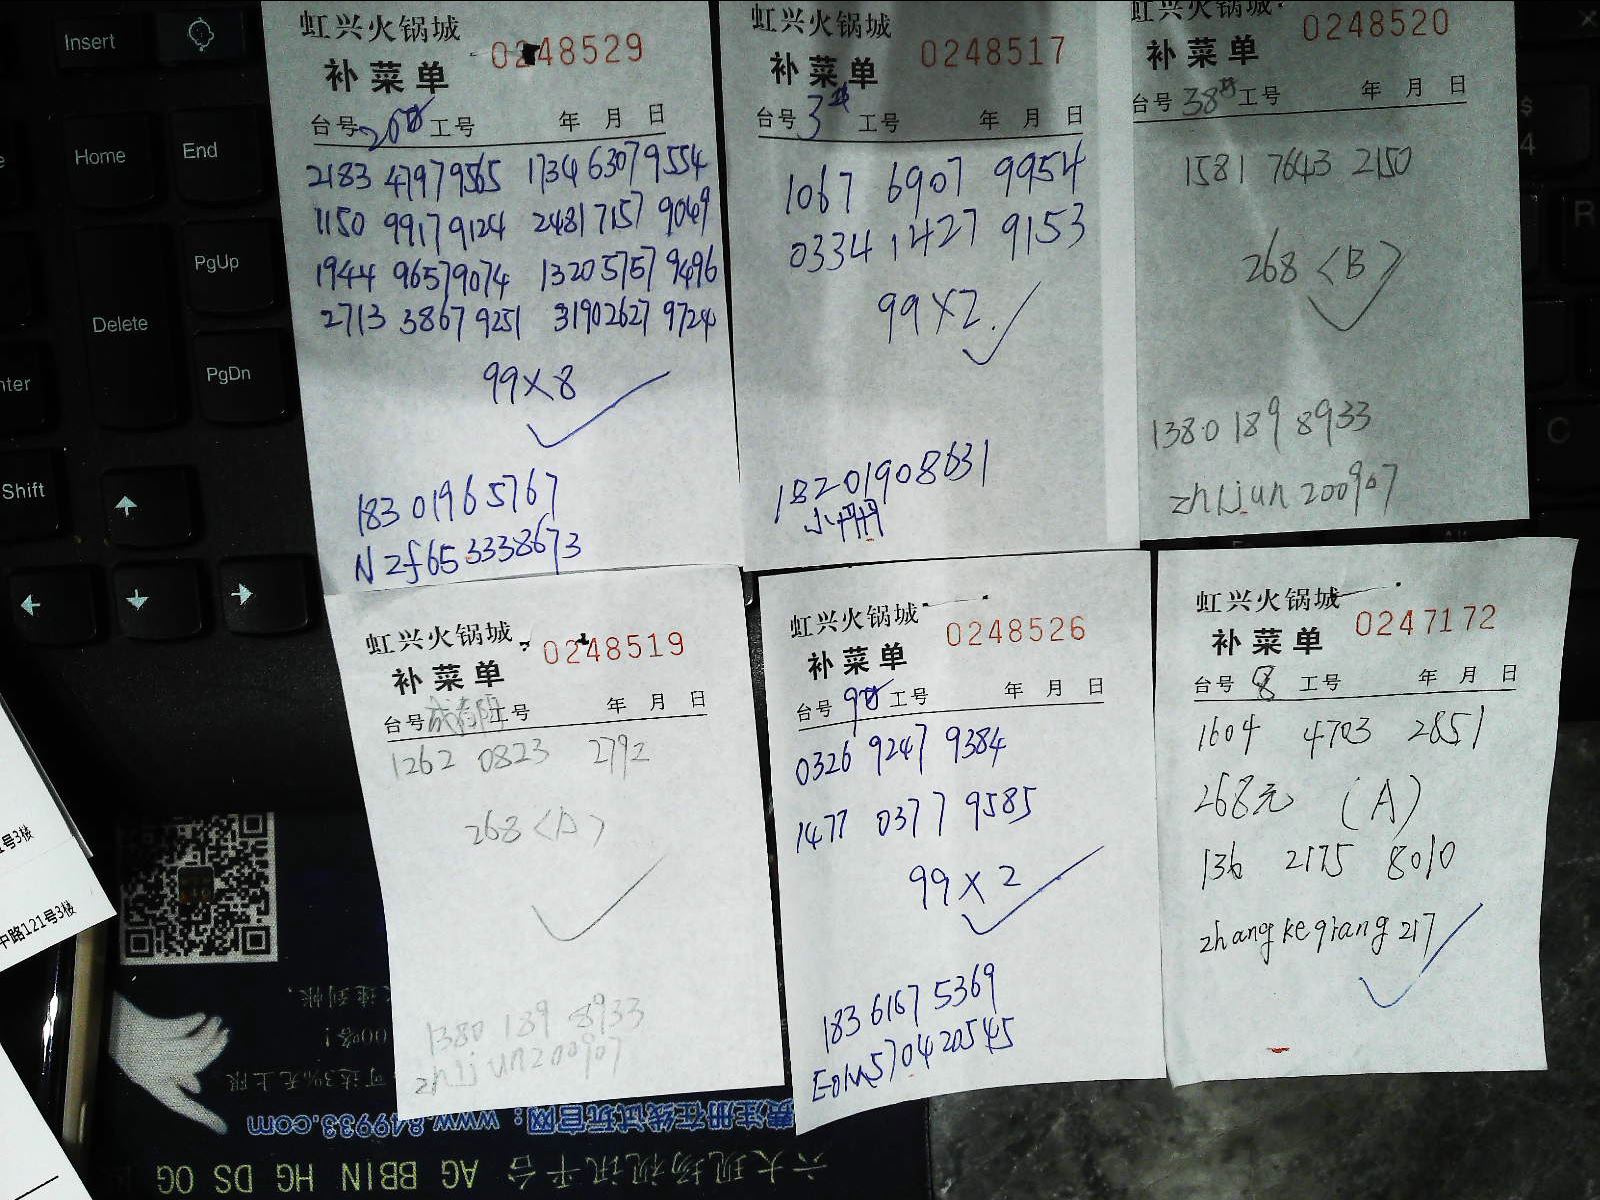 Insert
Home
End
PgUp
Delete
PgDn
Shift
虹兴火锅城
0248529
补菜单
台号 20 工号 年 月 日
2183 4797 9565 1734 6307 9554
1150 9917 9124 2481 7157 9049
1944 9657 9074 1320 5767 9496
2713 3867 9251 3190 2627 9724
99×8
18301965767
N zf653338673
虹兴火锅城
0248517
补菜单
台号 3 工号 年 月 日
1067 6907 9954
0334 1427 9153
99×2.
18201908631
虹兴火锅城
0248520
补菜单
台号 38 工号 年 月 日
1581 7643 2150
268 <B>
1380 189 8933
zhijun200907
虹兴火锅城
0248519
补菜单
台号 工号 年 月 日
1262 0823 2792
268
1380 189 8933
zhijun200907
虹兴火锅城
0248526
补菜单
台号 9 工号 年 月 日
0326 9247 9384
1477 0377 9585
99×2
183 6167 5369
虹兴火锅城
0247172
补菜单
台号 8 工号 年 月 日
1604 4703 2851
268元 (A)
136 2175 8010
zhangkeqiang217
号3楼
中路121号3楼
注册在线试玩官网：www.849933.com
六大现场视讯平台 AG BBIN HG DS OG